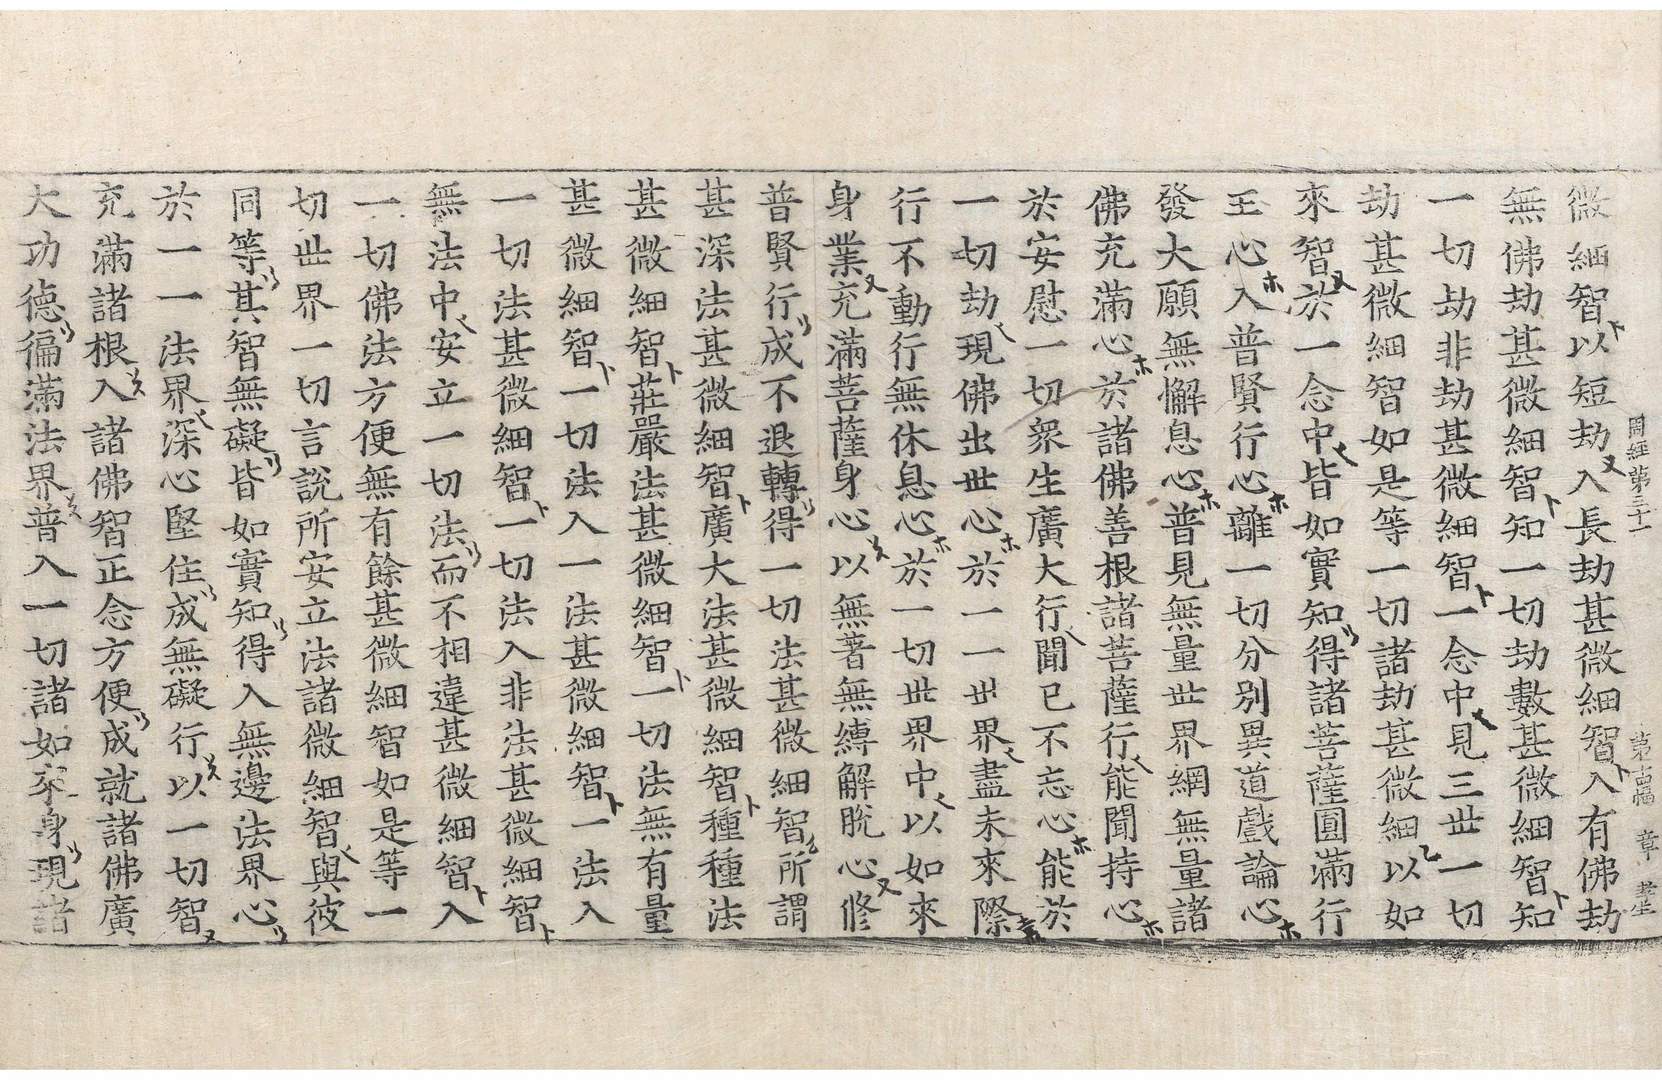 周經第三十一 第 幅 章
微細智以短劫入長劫甚微細智入有佛劫
無佛劫甚微細智知一切劫數甚微細智知
一切劫非劫甚微細智一念中見三世一切
劫甚微細智如是等一切諸劫甚微細以如
來智於一念中皆如實知得諸菩薩圓滿行
王心入普賢行心離一切分別異道戲論心
發大願無懈息心普見無量世界網無量諸
佛充滿心於諸佛善根諸菩薩行能聞持心
於安慰一切眾生廣大行聞已不忘心能於
一切劫現佛出世心於一一世界盡未來際
行不動行無休息心於一切世界中以如來
身業充滿菩薩身心以無著無縛解脫心修
普賢行成不退轉得一切法甚微細智所謂
甚深法甚微細智廣大法甚微細智種種法
甚微細智莊嚴法甚微細智一切法無有量
甚微細智一切法入一法甚微細智一法入
一切法甚微細智一切法入非法甚微細智
無法中安立一切法而不相違甚微細智入
一切佛法方便無有餘甚微細智如是等一
切世界一切言說所安立法諸微細智與彼
同等其智無礙皆如實知得入無邊法界心
於一一法界深心堅住成無礙行以一切智
充滿諸根入諸佛智正念方便成就諸佛廣
大功德徧滿法界普入一切諸如來身現諸